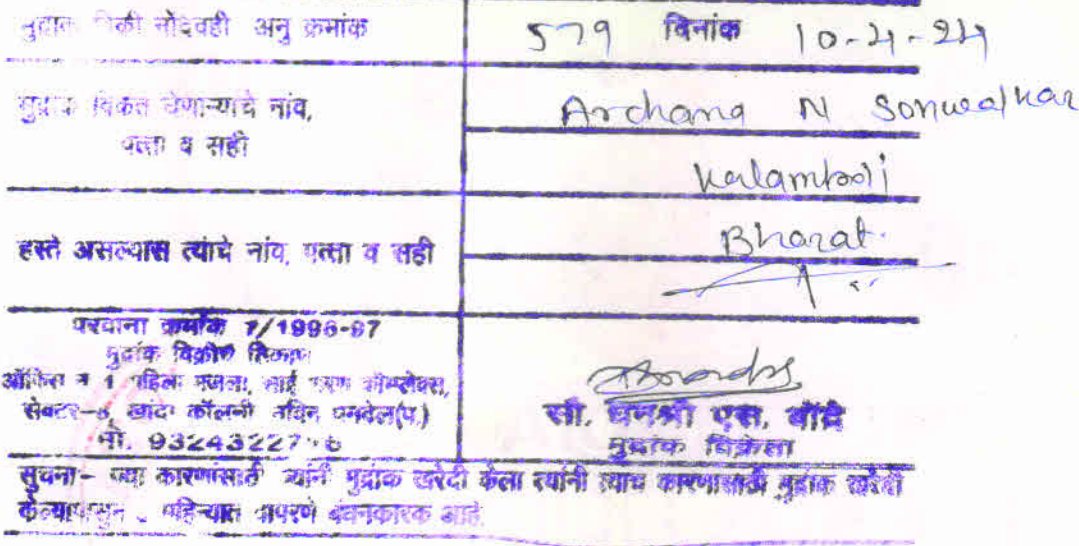 मुद्रांक विक्री नोंदवही अनु क्रमांक 579 दिनांक 10-4-24
मुद्रांक विकत घेणाऱ्याचे नांव, Archana N Sonwalkar
पत्ता व सही
Kalamboli
हस्ते असल्यास त्यांचे नांव, पत्ता व सही Bharat.
परवाना क्रमांक 7/1996-97
मुद्रांक विक्रीचे ठिकाण
ऑफिस नं 1 पहिला मजला, साई कॉम्प्लेक्स,
सेक्टर-8, खांदा कॉलनी नविन पनवेल(प.)
मो. 93243227 6
सौ. धनश्री एस. बोंद्रे
मुद्रांक विक्रेता
सुचना- ज्या कारणांसाठी ज्यांनी मुद्रांक खरेदी केला त्यांनी त्याच कारणासाठी मुद्रांक खरेदी
केल्यापासुन महिन्यात वापरणे बंधनकारक आहे.